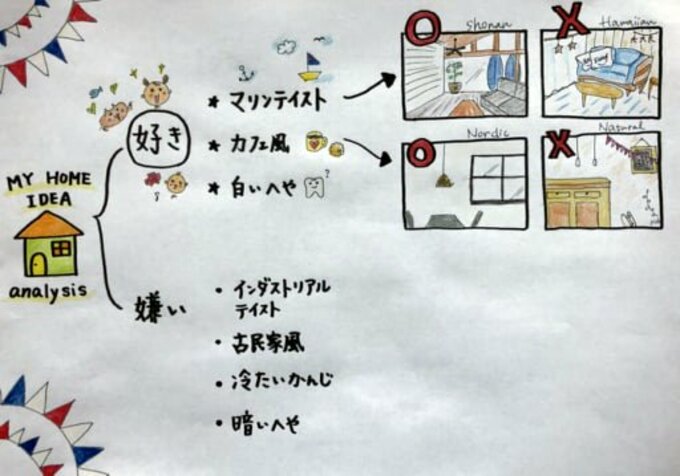 MY HOME
IDEA
analysis
好き
★ マリンテイスト
★ カフェ風
★ 白いへや
?
嫌い
・インダストリアル
テイスト
・古民家風
・冷たいかんじ
・暗いへや
O
Shonan
X
Hawaiian
O
Nordic
X
Natural